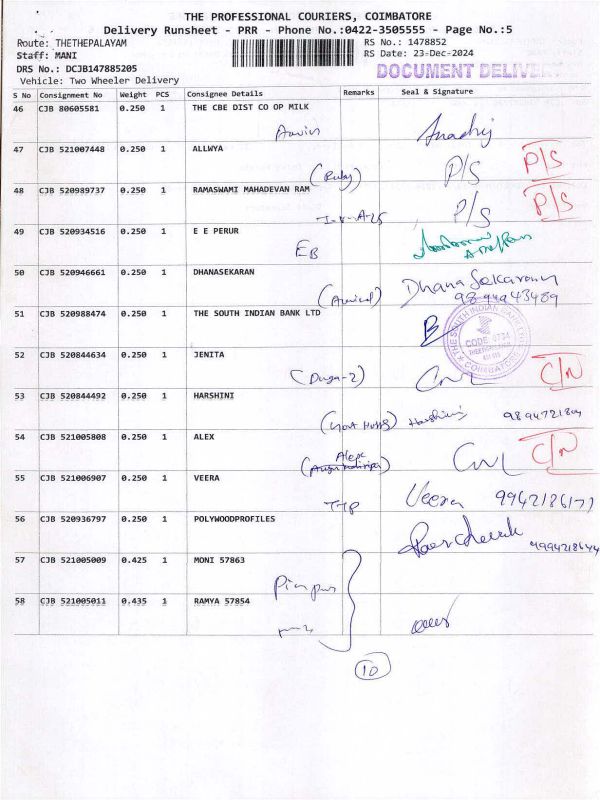 THE PROFESSIONAL COURIERS, COIMBATORE
Delivery Runsheet - PRR - Phone No.:0422-3505555 - Page No.:5
Route: THETHEPALAYAM RS No.: 1478852
Staff: MANI RS Date: 23-Dec-2024
DRS No.: DCJB147885205 DOCUMENT DELIVERY
Vehicle: Two Wheeler Delivery
S No Consignment No Weight PCS Consignee Details Remarks Seal & Signature
46 CJB 80605581 0.250 1 THE CBE DIST CO OP MILK
47 CJB 521007448 0.250 1 ALLWYA P/S P/S
(Ruby)
48 CJB 520989737 0.250 1 RAMASWAMI MAHADEVAN RAM P/S P/S
49 CJB 520934516 0.250 1 E E PERUR
EB
50 CJB 520946661 0.250 1 DHANASEKARAN
Dhana Sekaran
51 CJB 520988474 0.250 1 THE SOUTH INDIAN BANK LTD
B
THE SOUTH INDIAN BANK LTD
CODE 0734
COIMBATORE
52 CJB 520844634 0.250 1 JENITA
(Durga-2) C/N
53 CJB 520844492 0.250 1 HARSHINI
Harshini
54 CJB 521005808 0.250 1 ALEX
C/N
55 CJB 521006907 0.250 1 VEERA
Veera
56 CJB 520936797 0.250 1 POLYWOODPROFILES
57 CJB 521005009 0.425 1 MONI 57863
58 CJB 521005011 0.435 1 RAMYA 57854
10